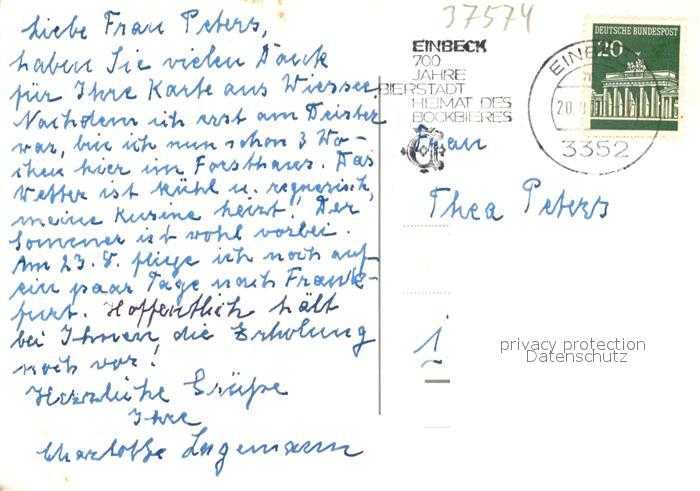 Liebe Frau Peters,
haben Sie vielen Dank
für Ihre Karte aus Wiessee.
Nachdem ich erst am Deister
war, bin ich nun schon 3 Wo-
chen hier im Forsthaus. Das
Wetter ist kühl u. regnerisch,
meine Kusine heizt! Der
Sommer ist wohl vorbei.
Am 23. 8. fliege ich noch auf
ein paar Tage nach Frank-
furt. Hoffentlich hält
bei Ihnen die Erholung
noch vor!
Herzliche Grüße
Ihre
Charlotte Lagemann
37574
EINBECK
700
JAHRE
BIERSTADT
HEIMAT DES
BOCKBIERES
DEUTSCHE BUNDESPOST
20
EINBE
20.8
3352
Frau
Thea Peters
1
privacy protection
Datenschutz